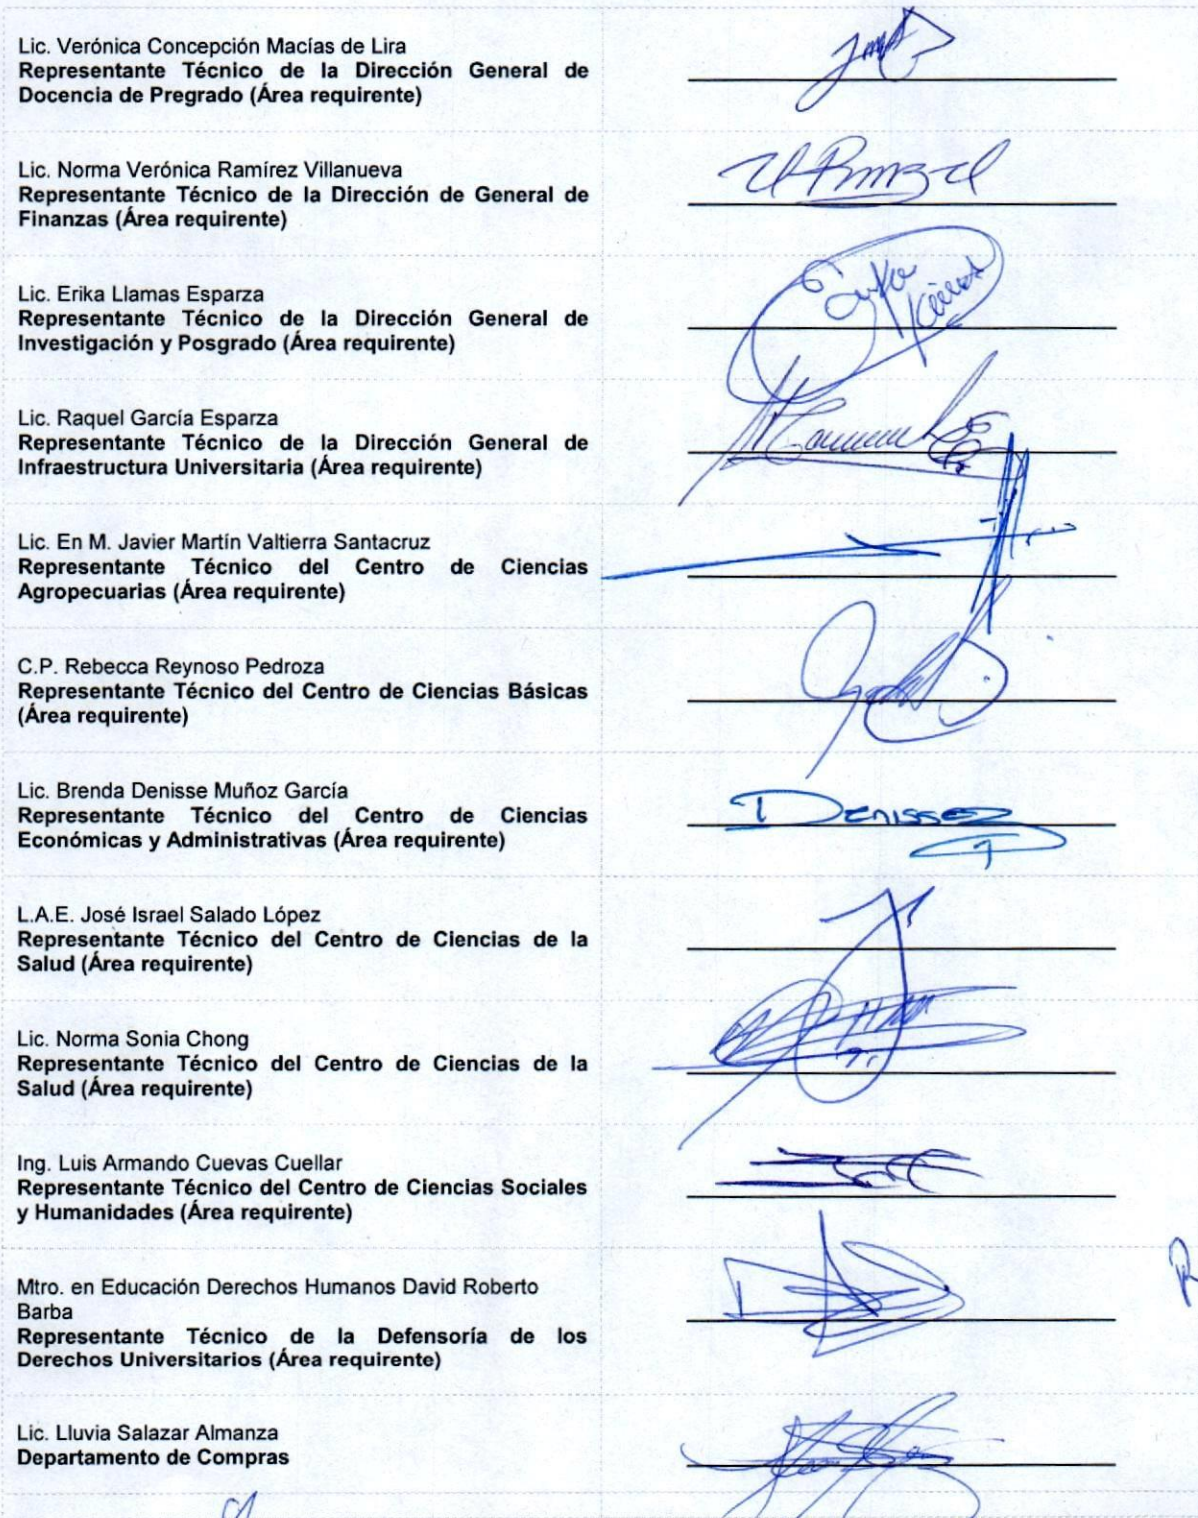 Lic. Verónica Concepción Macías de Lira
Representante Técnico de la Dirección General de
Docencia de Pregrado (Área requirente)
Lic. Norma Verónica Ramírez Villanueva
Representante Técnico de la Dirección de General de
Finanzas (Área requirente)
Lic. Erika Llamas Esparza
Representante Técnico de la Dirección General de
Investigación y Posgrado (Área requirente)
Lic. Raquel García Esparza
Representante Técnico de la Dirección General de
Infraestructura Universitaria (Área requirente)
Lic. En M. Javier Martín Valtierra Santacruz
Representante Técnico del Centro de Ciencias
Agropecuarias (Área requirente)
C.P. Rebecca Reynoso Pedroza
Representante Técnico del Centro de Ciencias Básicas
(Área requirente)
Lic. Brenda Denisse Muñoz García
Representante Técnico del Centro de Ciencias
Económicas y Administrativas (Área requirente)
L.A.E. José Israel Salado López
Representante Técnico del Centro de Ciencias de la
Salud (Área requirente)
Lic. Norma Sonia Chong
Representante Técnico del Centro de Ciencias de la
Salud (Área requirente)
Ing. Luis Armando Cuevas Cuellar
Representante Técnico del Centro de Ciencias Sociales
y Humanidades (Área requirente)
Mtro. en Educación Derechos Humanos David Roberto
Barba
Representante Técnico de la Defensoría de los
Derechos Universitarios (Área requirente)
Lic. Lluvia Salazar Almanza
Departamento de Compras